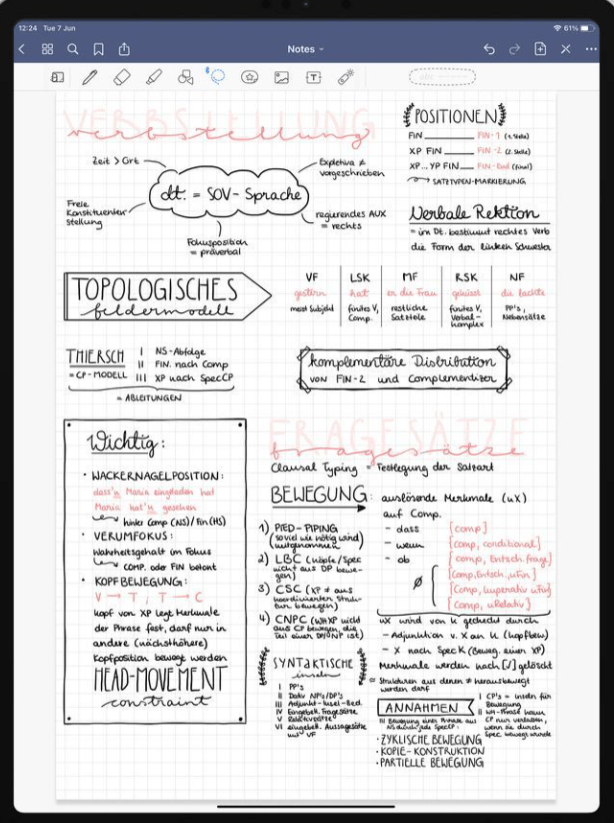 12:24 Tue 7 Jun
61%
Notes
VERBSTELLUNG
verbstellung
Zeit > Ort
Expletiva ≠
vorgeschrieben
dt. = SOV-Sprache
Freie
Konstituenten-
stellung
regierendes AUX
= rechts
Fokusposition
= präverbal
POSITIONEN
FIN FIN-1 (1. Stelle)
XP FIN FIN-2 (2. Stelle)
XP...YP FIN FIN-End (final)
SATZTYPEN-MARKIERUNG
Verbale Rektion
= im Dt. bestimmt rechtes Verb
die Form der linken Schwester
TOPOLOGISCHES
feldermodell
VF LSK MF RSK NF
gestern hat er die Frau geküsst die lachte
meist Subjekt finites V, restliche finites V, PP's,
Comp. Satzteile Verbal- Nebensätze
komplex
THIERSCH I NS-Abfolge
= CP-MODELL II FIN. nach Comp
III XP nach SpecCP
= ABLEITUNGEN
komplementäre Distribution
VON FIN-2 und Complementizer
Wichtig:
· WACKERNAGELPOSITION:
dass'n Maria eingeladen hat
Maria hat'n gesehen
hinter Comp (NS) / Fin (HS)
· VERUMFOKUS:
Wahrheitsgehalt im Fokus
COMP. oder FIN betont
· KOPFBEWEGUNG:
V → T, T → C
Kopf von XP legt Merkmale
der Phrase fest, darf nur in
andere (nächsthöhere)
Kopfposition bewegt werden
HEAD-MOVEMENT
constraint
FRAGESÄTZE
fragesätze
Clausal Typing = Festlegung der Satzart
BEWEGUNG: auslösende Merkmale (uX)
auf Comp.
- dass [comp]
- wenn [comp, conditional]
- ob [comp, Entsch.frage]
ø [Comp, Entsch, uFin]
[Comp, Imperativ uFin]
[Comp, uRelativ]
1) PIED-PIPING
(soviel wie nötig wird
mitgenommen)
2) LBC (Köpfe/Spec
nicht aus DP bewe-
gen)
3) CSC (XP ≠ aus
koordinierten Struk-
tur bewegen)
4) CNPC (WHXP nicht
aus CP bewegen, die
Teil einer DP/NP ist)
uX wird von K gecheckt durch
- Adjunktion v. X an K (Kopfbew)
- X nach Spec K (Beweg. einer XP)
Merkmale werden nach [✓] gelöscht
SYNTAKTISCHE
inseln
= Strukturen aus denen ≠ herausbewegt
werden darf
I PP's
II Dativ NP's/DP's
III Adjunkt-Insel-Bed.
IV Eingebett. Fragesätze
V Relativsätze
VI eingebett. Aussagesätze
VF
ANNAHMEN
I CP's = Inseln für
Bewegung
II WH-Phrase kann
CP nur verlassen,
wenn sie durch
Spec bewegt wurde
III Bewegung einer Phrase aus
NS durch jede SpecCP:
· ZYKLISCHE BEWEGUNG
· KOPIE-KONSTRUKTION
· PARTIELLE BEWEGUNG